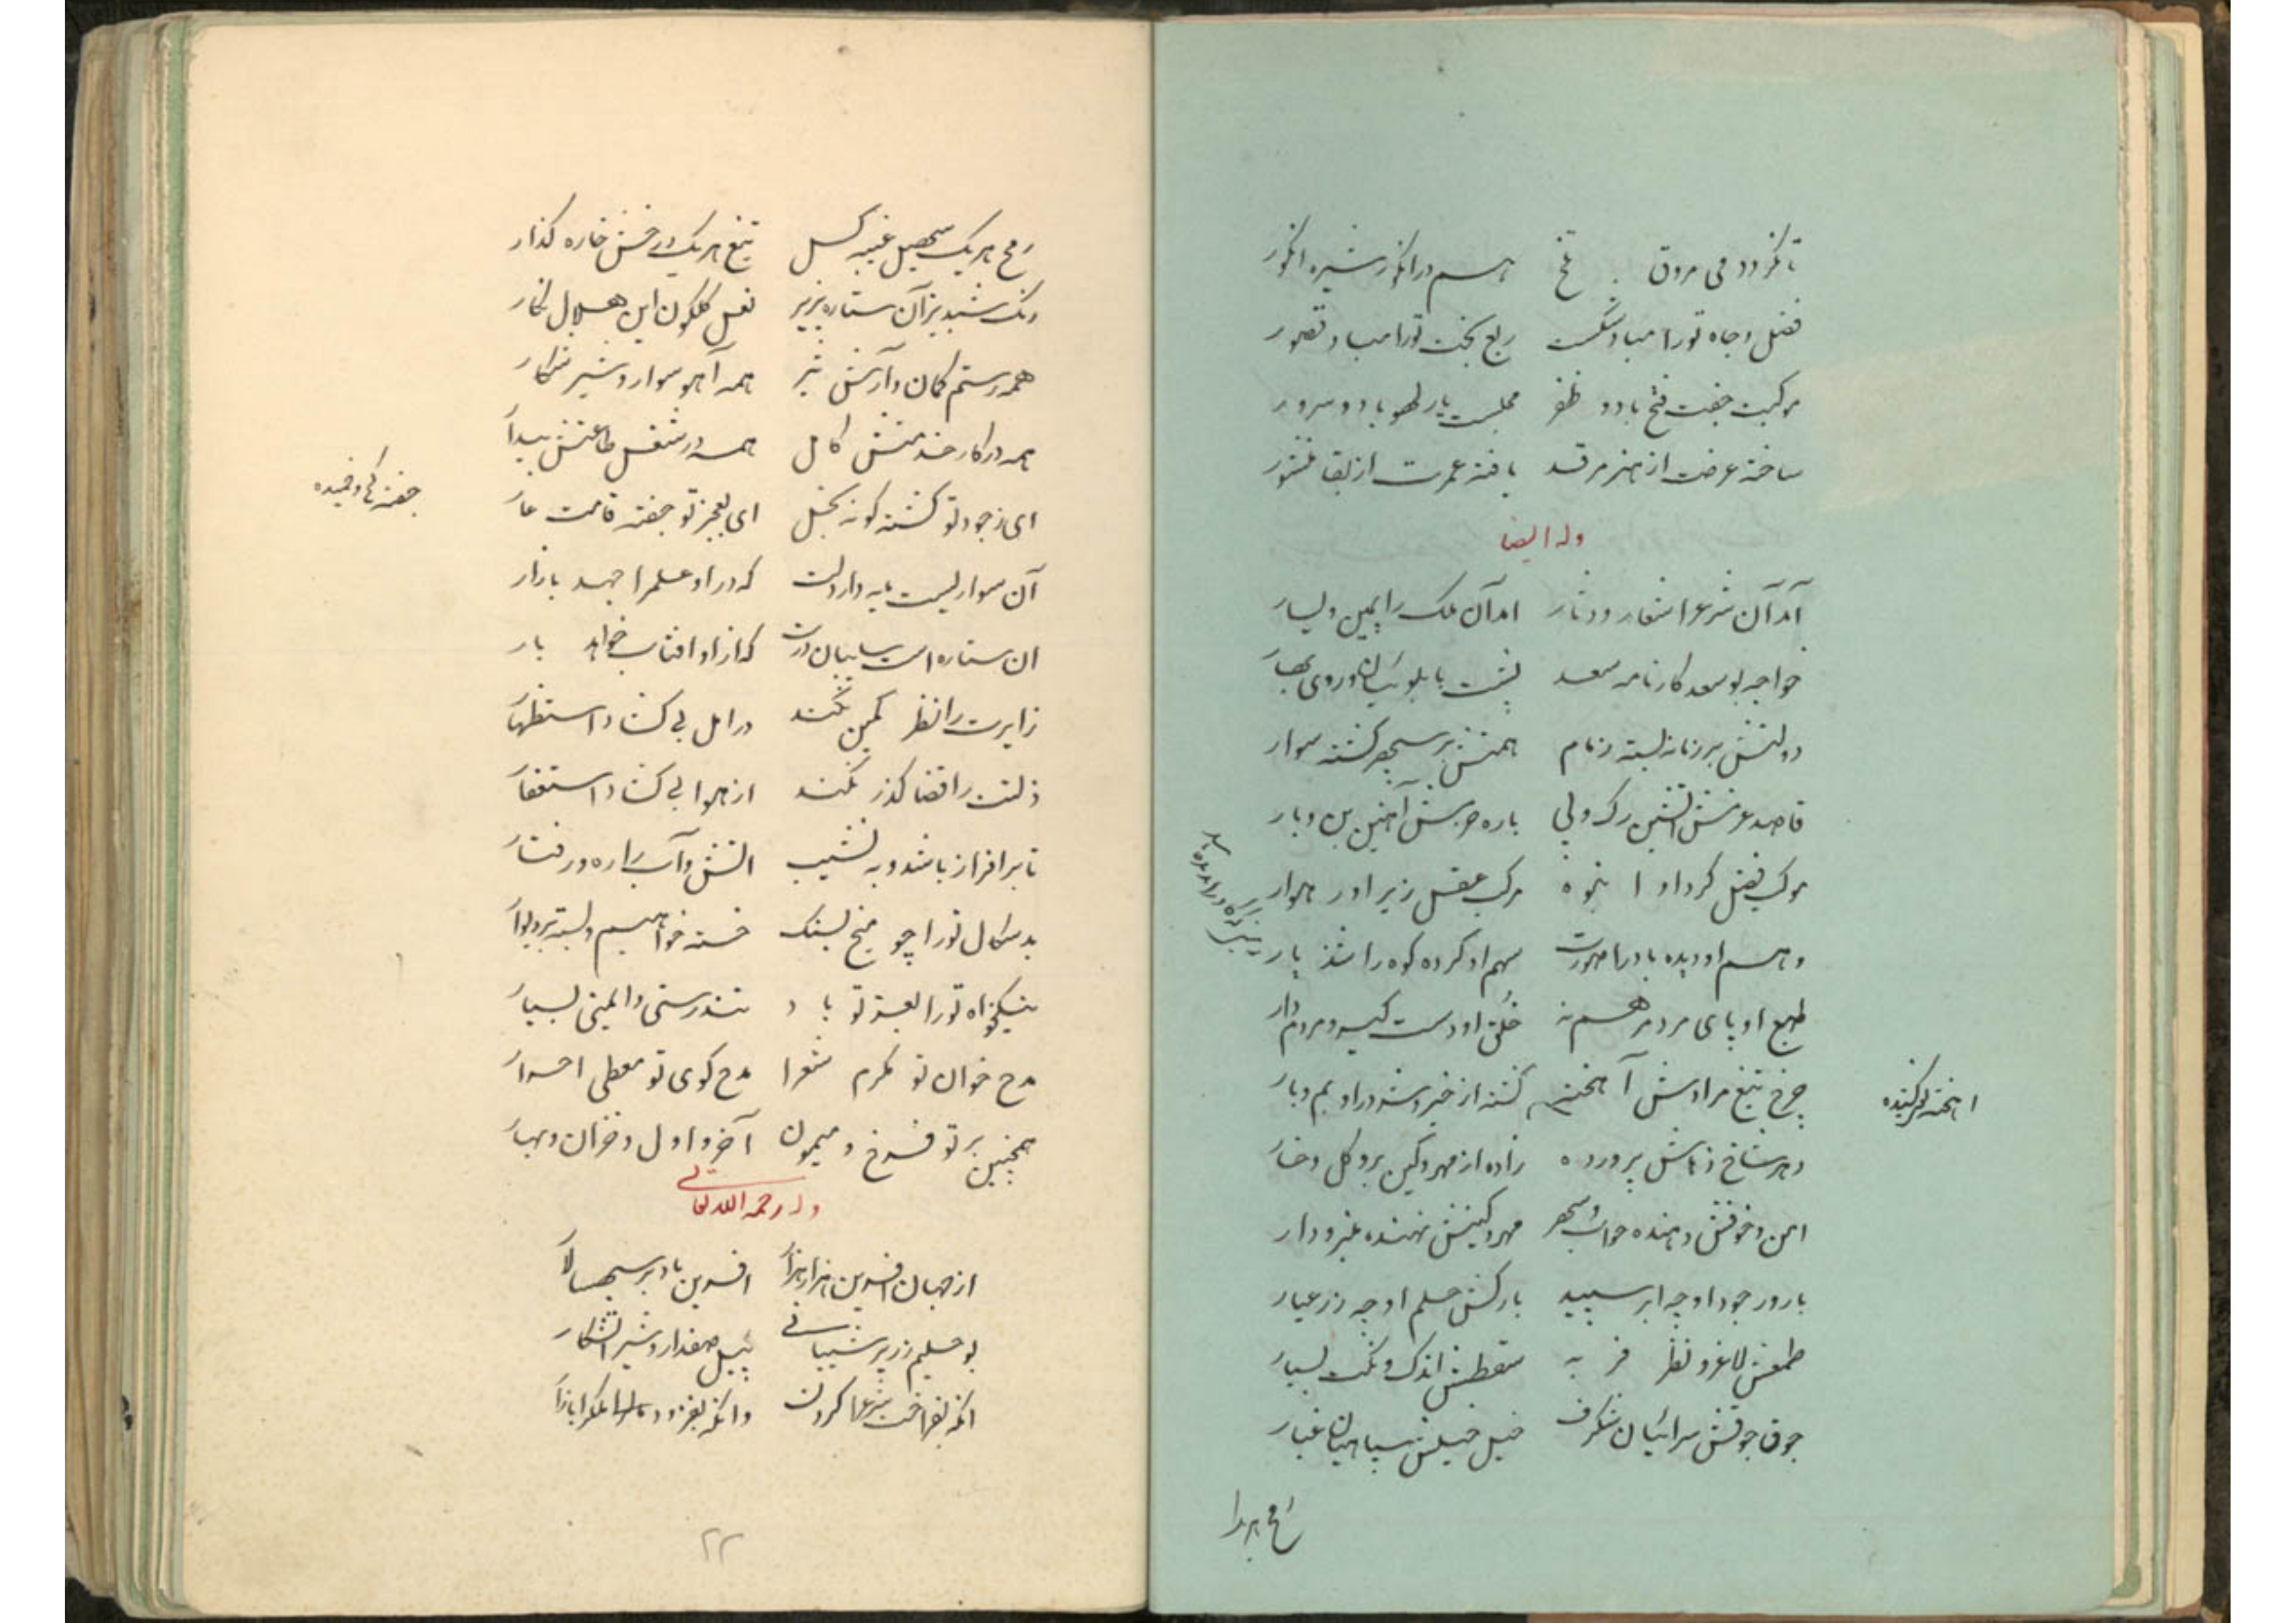 تا نگردد می مروق تلخ هم در انگور شیره انگور
فضل و جاه تو را مباد شکست ربع بخت تو را مباد قصور
مرکبت جفت فتح باد و ظفر مجلست یار لهو باد و سرور
ساخته عرضت از هنر مرقد یافته عمرت از بقا منشور
وله ایضا
آمد آن شرع را شعار و دثار آمد آن ملک را یمین و یسار
خواجه بوسعد کارنامه سعد پشت بابلوئیان و روی بهار
دولتش بر زمانه بسته زمام همتش بر سپهر گشته سوار
قاصد عزمش آتشین رگ و پی باره حزمش آهنین بن و بار
موکب فضل کرد او انبوه مرکب عقل زیر او رهوار
وهم او دیده باد را صورت سهم او کرده کوه را شد یار
طبع او پای مرد مرهم نه خلق او دست کیسه و مردم دار
چرخ تیغ مرادش آهخته گشته از خیر و شر در او بم و بار
دهر شاخ زمانش پرورده زاده از مهر و کین برو گل و خار
اهخته برکشیده
امن و خوفش دهنده خواب و سهر مهر و کینش نهنده منبر و دار
بارور جود او چه ابر سپید بارکش حلم او چه زر عیار
طمعش لاغر و نظر فربه سقطش اندک و نکت بسیار
جوق جوقش سرائیان شگرف خیل خیلش سپاهیان عیار
رمح هریک
رمح هر یک سهیل غیبه گسل تیغ هر یک درفش خاره گذار
رنگ شبدیز آن ستاره پذیر نعل گلگون این هلال نگار
همه رستم کمان و آرش تیر همه آهو سوار و شیر شکار
همه در کار خدمتش کامل همه در شغل طاعتش بیدار
ای ز جود تو گشته گونه بخل ای بعجز تو جفته قامت عار
جفته کج و خمیده
آن سواریست پایه دار دلت که در او علم را جهد بازار
آن ستاره است سایبان درت که از او آفتاب خواهد بار
زایرت را نظر کمین نکند در امل بی گشاد استظهار
زلتت را قضا گذر نکند از هوا بی گشاد استغفار
تا بر افراز باشد و به نشیب آتش و آب را ره و رفتار
بدسگال تو را چو میخ بسنگ خسته خواهیم و بسته بر دیوار
نیکخواه تو را بعز تو باد تندرستی و ایمنی بسیار
مدح خوان تو مکرم شعرا مدح گوی تو معطی احرار
همچنین بر تو فرخ و میمون آخر و اول و خزان و بهار
وله رحمه الله تعالی
از جهان آفرین هزار هزار آفرین باد بر سپهسالار
بو حلیم زریر شیبانی پیل صفدار و شیر شکار